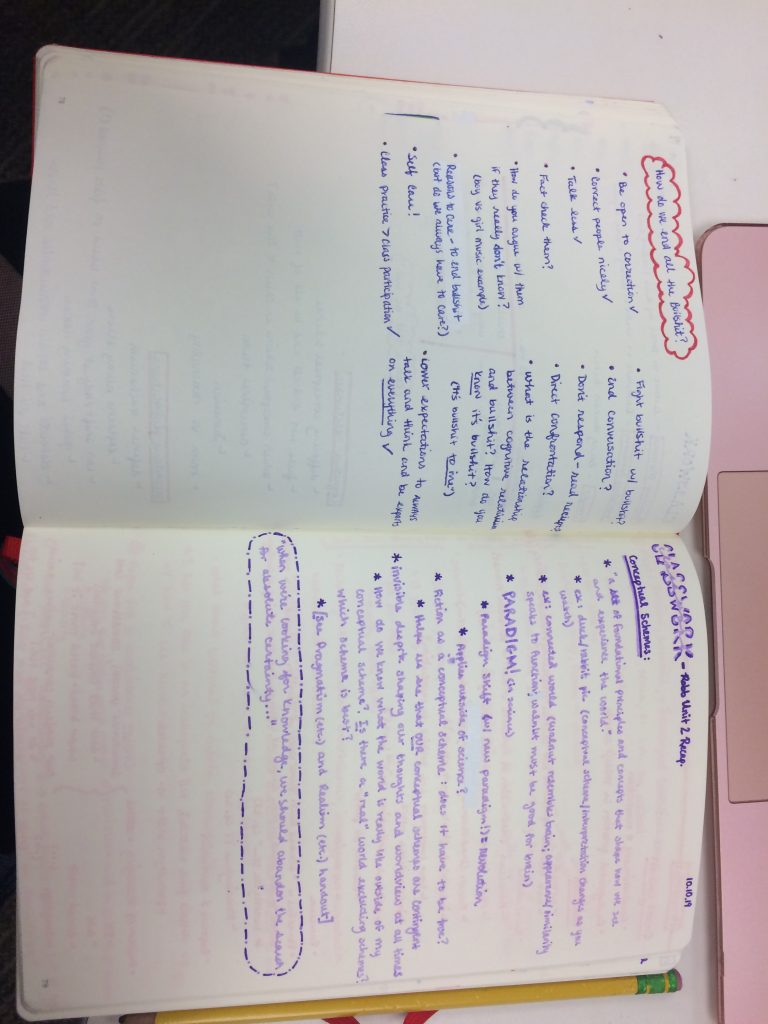 How do we end all the Bullshit?
• Be open to correction ✓
• Correct people nicely ✓
• Talk less ✓
• Fact check them?
• How do you argue w/ them
if they really don't know?
(boy vs girl music example)
• Reasons to care - to end bullshit
(but do we always have to care?)
• Self care!
• Class practice > class participation ✓
• Fight bullshit w/ bullshit?
• End conversation?
• Don't respond - read receipts
• Direct confrontation?
• What is the relationship
between cognitive relativism
and bullshit? How do you
know it's bullshit?
(It's bullshit to me)
• Lower expectations to always
talk and think and be experts
on everything ✓
CLASSWORK - Unit 2 Recap.
10.10.19
Conceptual Schemes:
* "a set of foundational principles and concepts that shape how we see
and experience the world."
* ex: duck/rabbit pic (conceptual scheme/interpretation changes as you
watch)
* ex: connected world (walnut resembles brain; appearance/similarity
speaks to function; walnut must be good for brain)
* PARADIGM! (in science)
* Paradigm shift (w/ new paradigm!) = revolution
* Applies outside of science?
* Fiction as a conceptual scheme: does it have to be true?
* Helps us see that OUR conceptual schemes are contingent
* invisible deeply shaping our thoughts and worldview at all times
* How do we know what the world is really like outside of my
conceptual scheme? Is there a "real" world excluding schemes?
which scheme is best?
* [see Pragmatism (etc.) and Realism (etc.) handout]
"when we're looking for knowledge, we should abandon the search
for absolute certainty..."